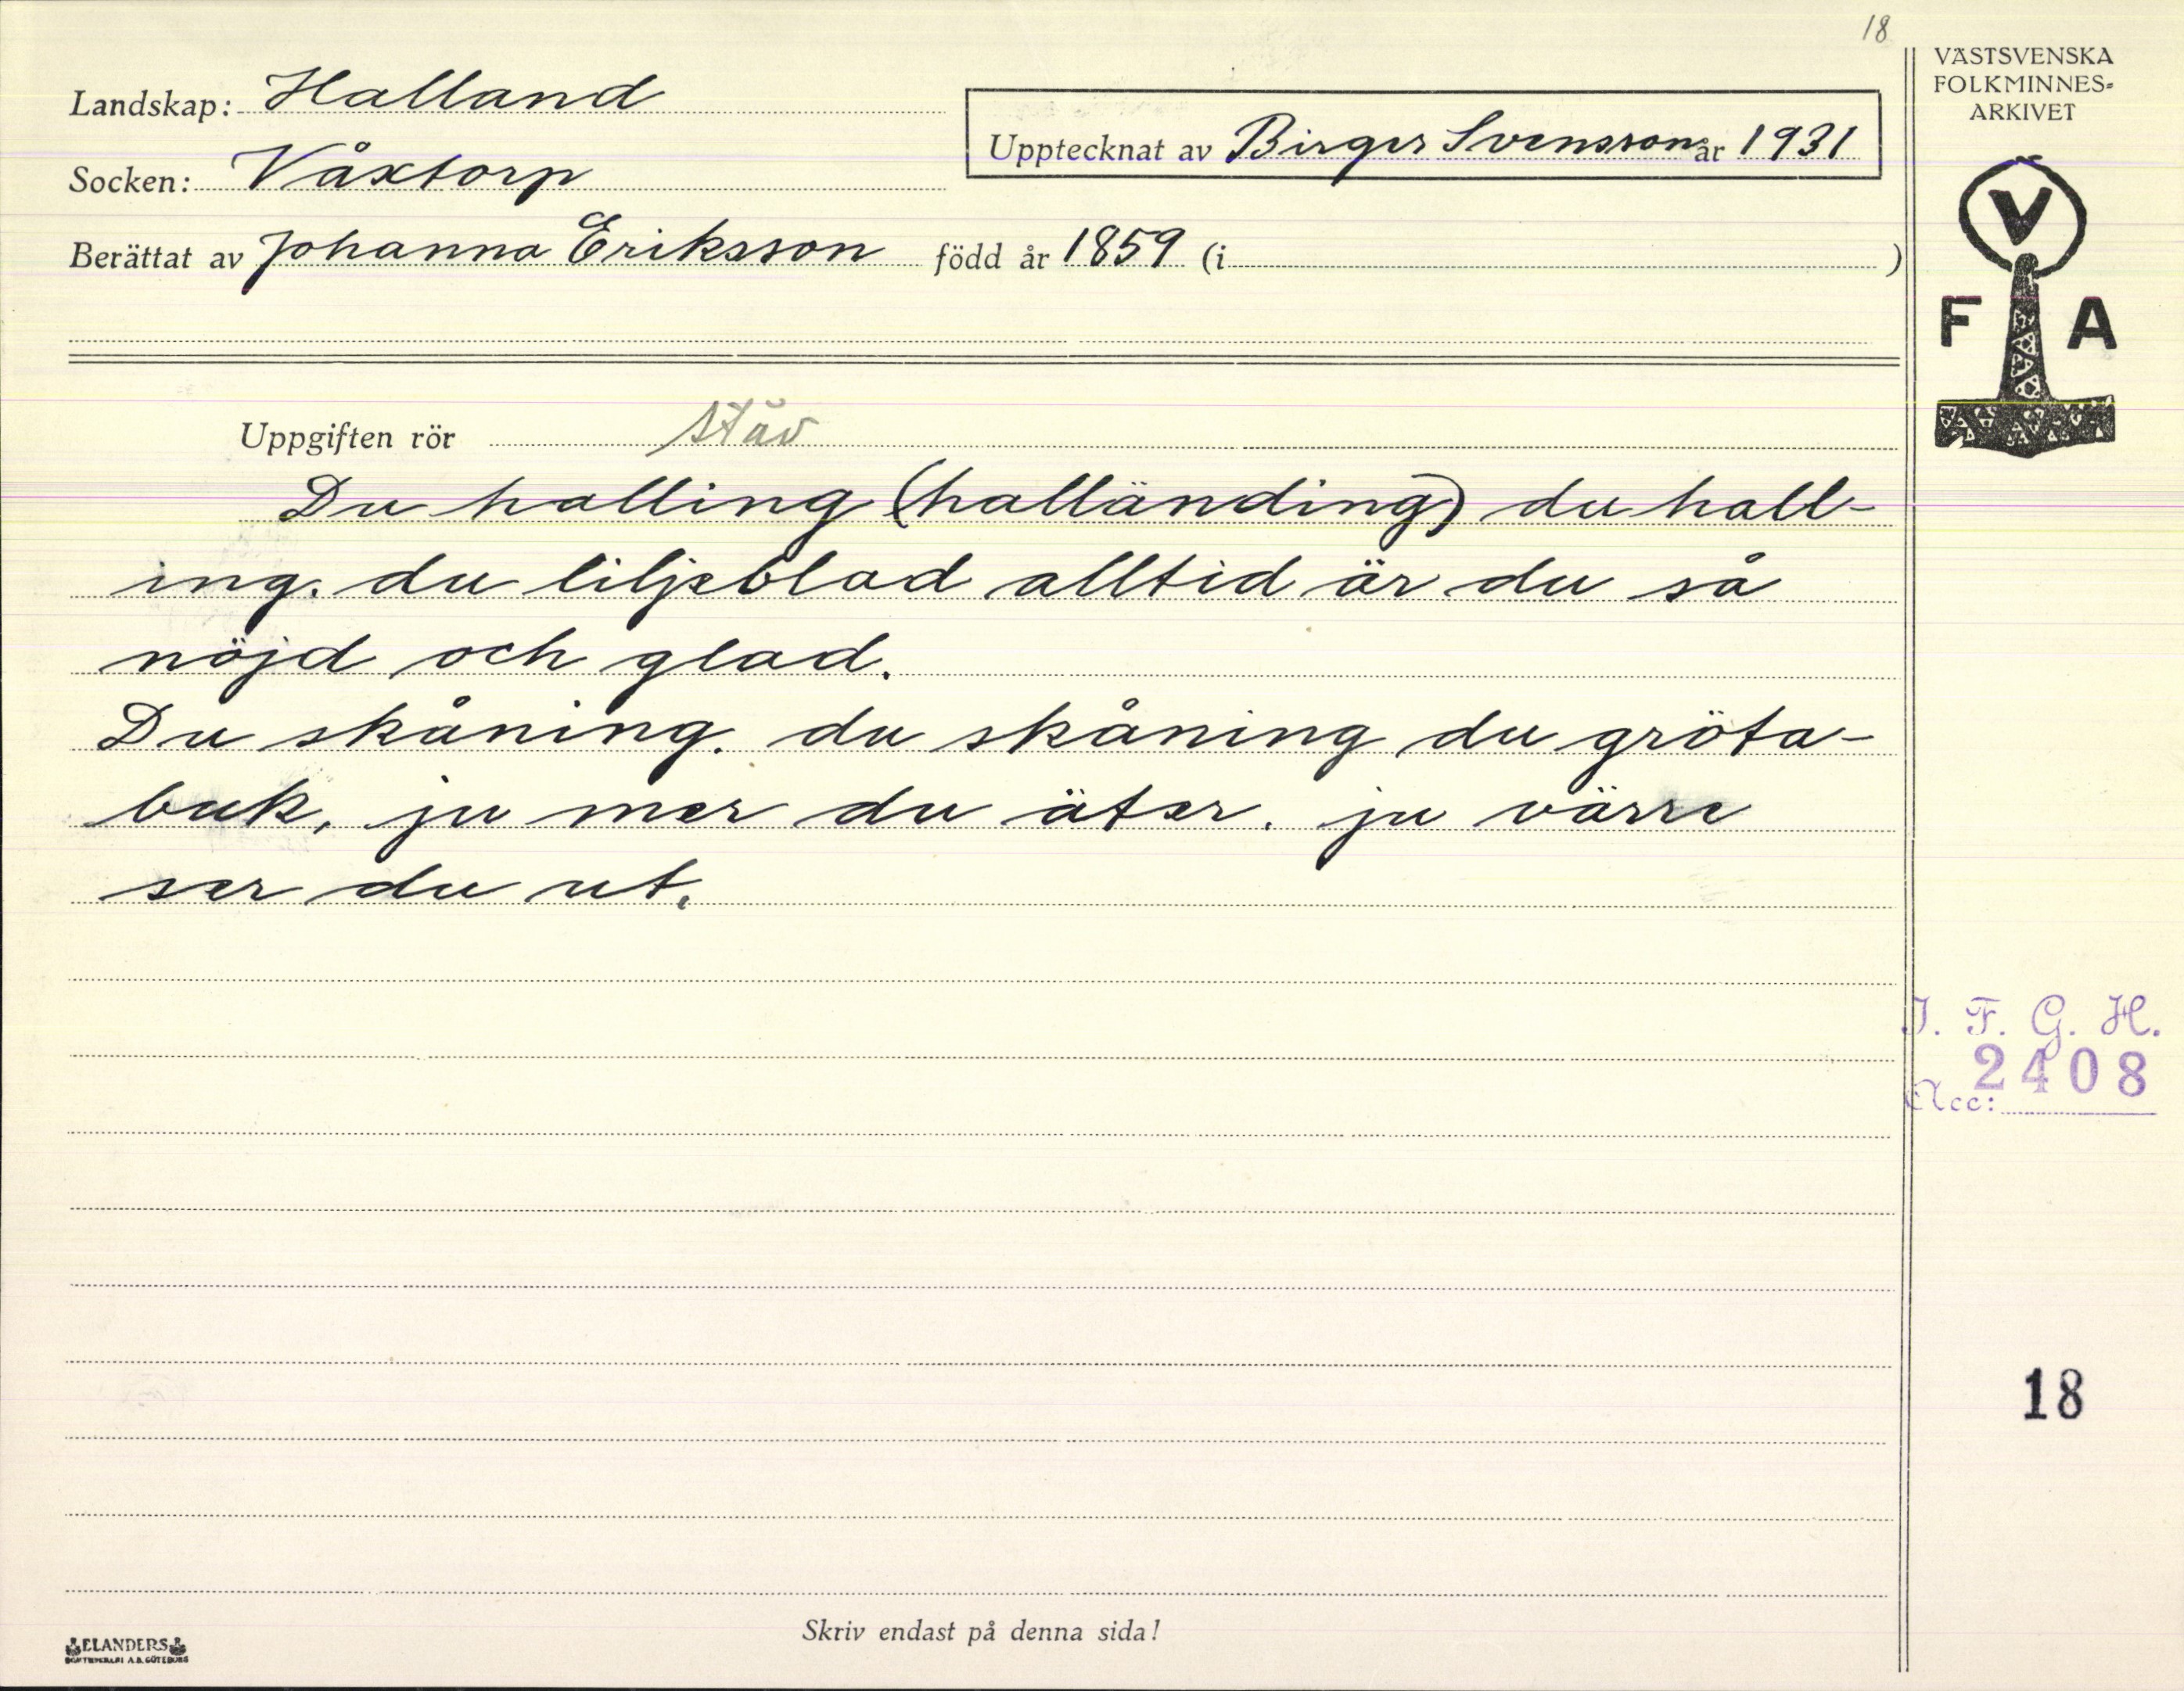 18
VÄSTSVENSKA
FOLKMINNES-
ARKIVET
Landskap: Halland
Upptecknat av Birger Svensson år 1931
Socken: Våxtorp
Berättat av Johanna Eriksson född år 1859 (i )
V
F A
Uppgiften rör stäv
Du halling (halländing) du hall-
ing. du liljeblad alltid är du så
nöjd och glad.
Du skåning. du skåning du gröta-
buk, ju mer du äter. ju värre
ser du ut.
I. F. G. H.
2408
Acc:
18
Skriv endast på denna sida!
ELANDERS
A.B. GÖTEBORG